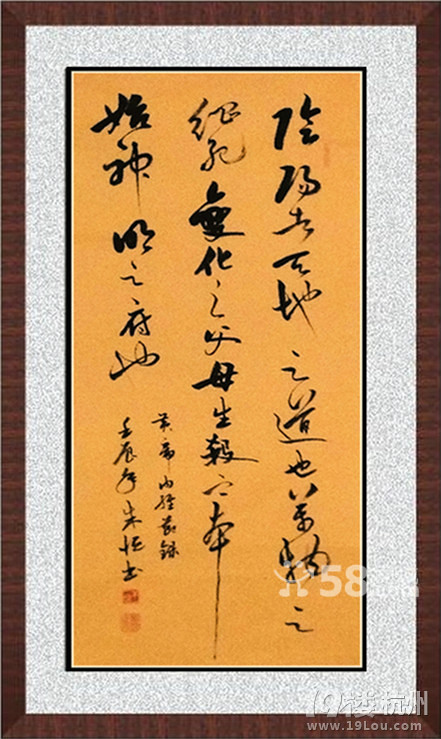 陰陽者天地之道也萬物之
綱紀變化之父母生殺之本
始神明之府也
黃帝內經節錄
壬辰年朱恒書
58
19楼杭州
www.19Lou.com